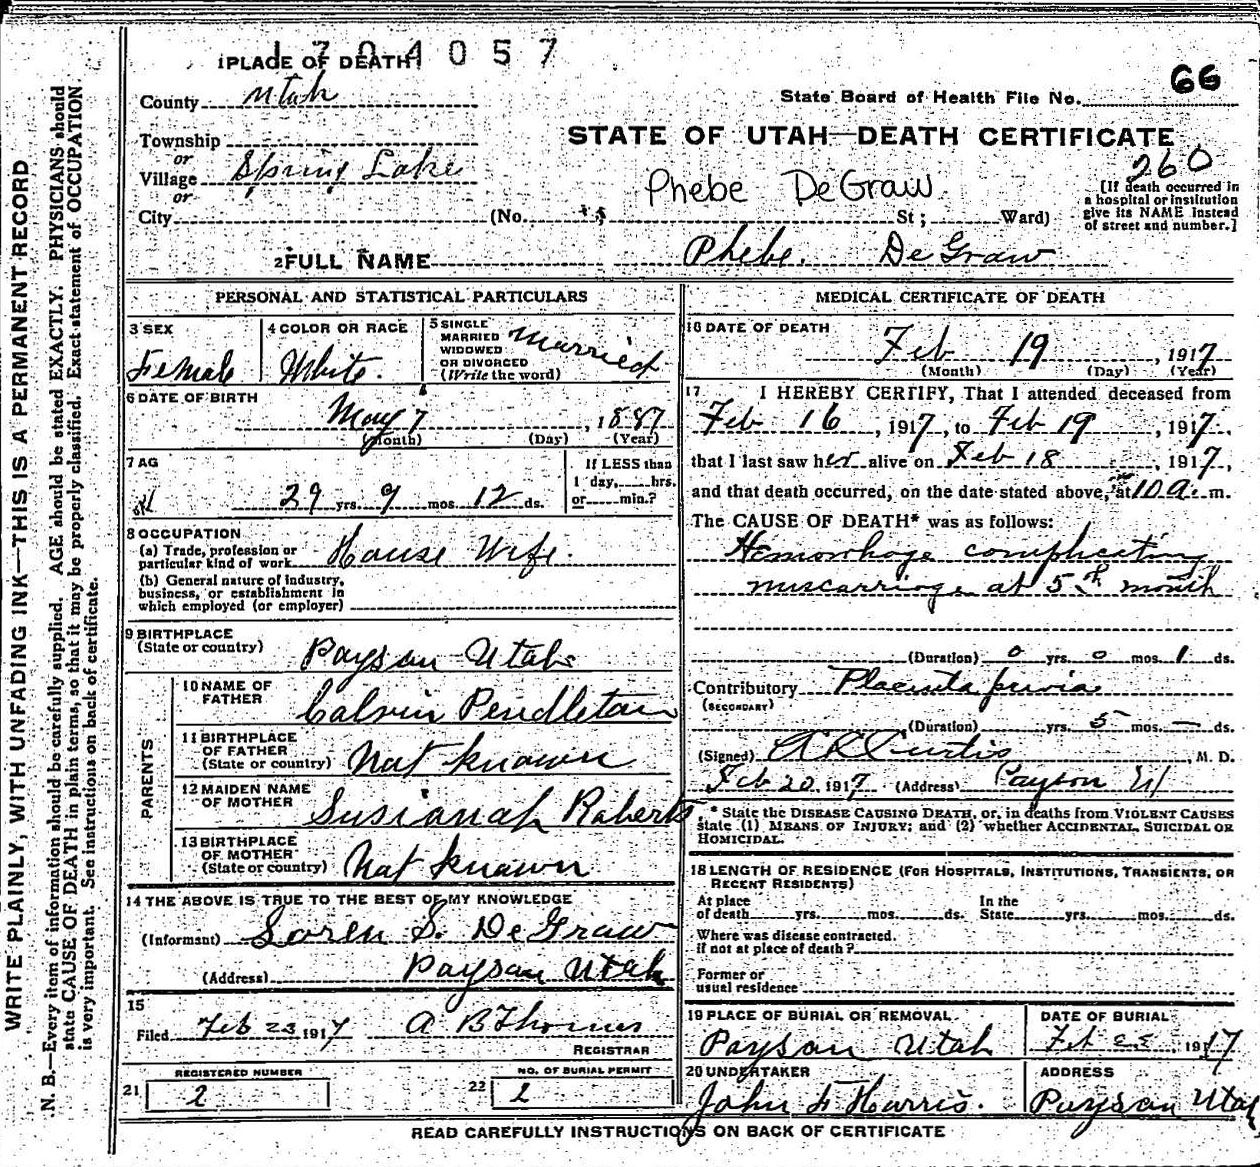 1704057
1 PLACE OF DEATH
66
County Utah
State Board of Health File No.
Township
STATE OF UTAH—DEATH CERTIFICATE
or
Village Spring Lake
260
or
Phebe DeGraw
City (No. St; Ward)
[If death occurred in
a hospital or institution
give its NAME instead
of street and number.]
2 FULL NAME Phebe. DeGraw
PERSONAL AND STATISTICAL PARTICULARS
3 SEX
Female
4 COLOR OR RACE
White.
5 SINGLE
MARRIED
WIDOWED
OR DIVORCED
(Write the word)
Married
6 DATE OF BIRTH
May 7, 1887
(Month) (Day) (Year)
7 AG
29 yrs. 9 mos. 12 ds.
If LESS than
1 day, hrs.
or min.?
8 OCCUPATION
(a) Trade, profession or
particular kind of work House Wife.
(b) General nature of industry,
business, or establishment in
which employed (or employer)
9 BIRTHPLACE
(State or country) Payson Utah
PARENTS
10 NAME OF
FATHER Calvin Pendleton
11 BIRTHPLACE
OF FATHER
(State or country) Not known
12 MAIDEN NAME
OF MOTHER Susianah Roberts
13 BIRTHPLACE
OF MOTHER
(State or country) Not known
14 THE ABOVE IS TRUE TO THE BEST OF MY KNOWLEDGE
(Informant) Soren S. DeGraw
(Address) Payson Utah
15
Filed Feb 23 1917 A B Thomas
REGISTRAR
REGISTERED NUMBER
21 2
NO. OF BURIAL PERMIT
22 2
MEDICAL CERTIFICATE OF DEATH
16 DATE OF DEATH
Feb 19, 1917
(Month) (Day) (Year)
17 I HEREBY CERTIFY, That I attended deceased from
Feb 16, 1917, to Feb 19, 1917,
that I last saw her alive on Feb 18, 1917,
and that death occurred, on the date stated above, at 10 a. m.
The CAUSE OF DEATH* was as follows:
Hemorrhage complicating
miscarriage at 5th month
(Duration) 0 yrs. 0 mos. 1 ds.
Contributory Placenta previa
(SECONDARY)
(Duration) yrs. 5 mos. — ds.
(Signed) A L Curtis, M. D.
Feb 20, 1917 (Address) Payson Ut
* State the DISEASE CAUSING DEATH, or, in deaths from VIOLENT CAUSES
state (1) MEANS OF INJURY; and (2) whether ACCIDENTAL, SUICIDAL OR
HOMICIDAL.
18 LENGTH OF RESIDENCE (FOR HOSPITALS, INSTITUTIONS, TRANSIENTS, OR
RECENT RESIDENTS)
At place
of death yrs. mos. ds.
In the
State yrs. mos. ds.
Where was disease contracted.
if not at place of death?
Former or
usual residence
19 PLACE OF BURIAL OR REMOVAL
Payson Utah
DATE OF BURIAL
Feb 22, 1917
20 UNDERTAKER
John F Harris.
ADDRESS
Payson Utah
READ CAREFULLY INSTRUCTIONS ON BACK OF CERTIFICATE
WRITE PLAINLY, WITH UNFADING INK—THIS IS A PERMANENT RECORD
N. B.—Every item of information should be carefully supplied. AGE should be stated EXACTLY. PHYSICIANS should
state CAUSE OF DEATH in plain terms, so that it may be properly classified. Exact statement of OCCUPATION
is very important. See instructions on back of certificate.